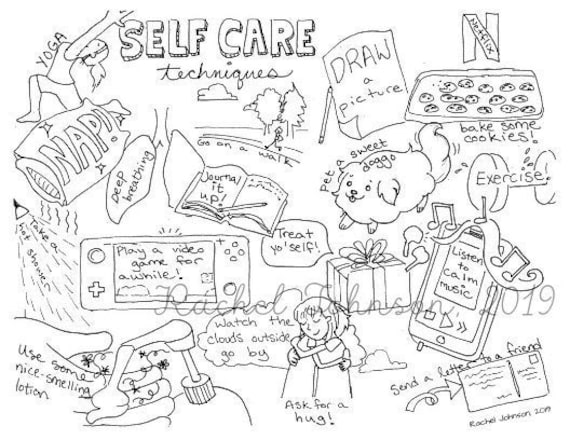 SELF CARE
techniques
YOGA
NAP!
Deep
breathing
Go on a walk
DRAW
a
picture
Netflix
N
bake some
cookies!
Pet a sweet
doggo
Exercise!
Journal
it
up!
Take a
hot shower
Play a video
game for
awhile!
Treat
yo'self!
Listen
to
calm
music
Rachel Johnson 2019
Use some
nice-smelling
lotion
Watch the
clouds outside
go by
Ask for a
hug!
Send a letter to a friend
Rachel Johnson 2019